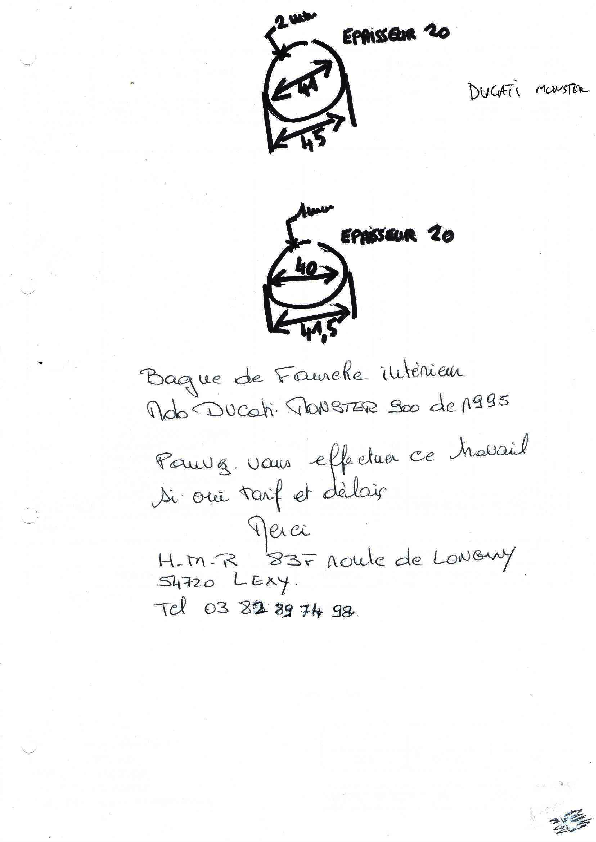 2 mm
EPAISSEUR 20
41
45
DUCATI MONSTER
1mm
EPAISSEUR 20
40
41,5
Bague de Fourche intérieur
Moto DUCATI. MONSTER 900 de 1995
Pouvez. vous effectuer ce travail
si oui tarif et délais
Merci
H-M-R 83F route de LONGWY
54720 LEXY.
Tel 03 82 89 74 98